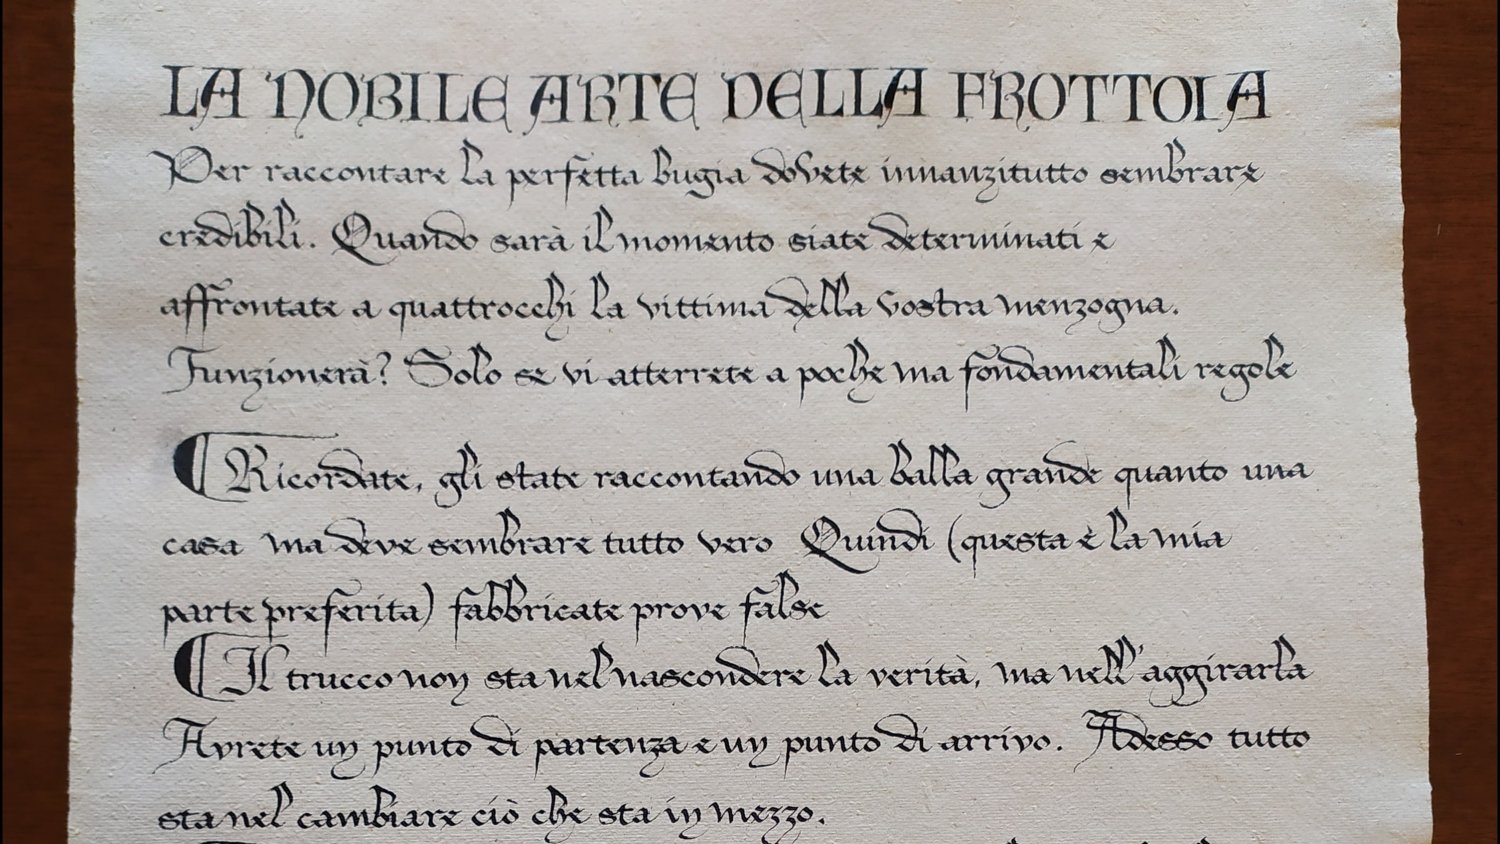 LA NOBILE ARTE DELLA FROTTOLA
Per raccontare la perfetta bugia dovete innanzitutto sembrare
credibili. Quando sarà il momento siate determinati e
affrontate a quattrocchi la vittima della vostra menzogna.
Funzionerà? Solo se vi atterrete a poche ma fondamentali regole
¶ Ricordate, gli state raccontando una balla grande quanto una
casa ma deve sembrare tutto vero Quindi (questa è la mia
parte preferita) fabbricate prove false
¶ Il trucco non sta nel nascondere la verità, ma nell'aggirarla
Avrete un punto di partenza e un punto di arrivo. Adesso tutto
sta nel cambiare ciò che sta in mezzo.